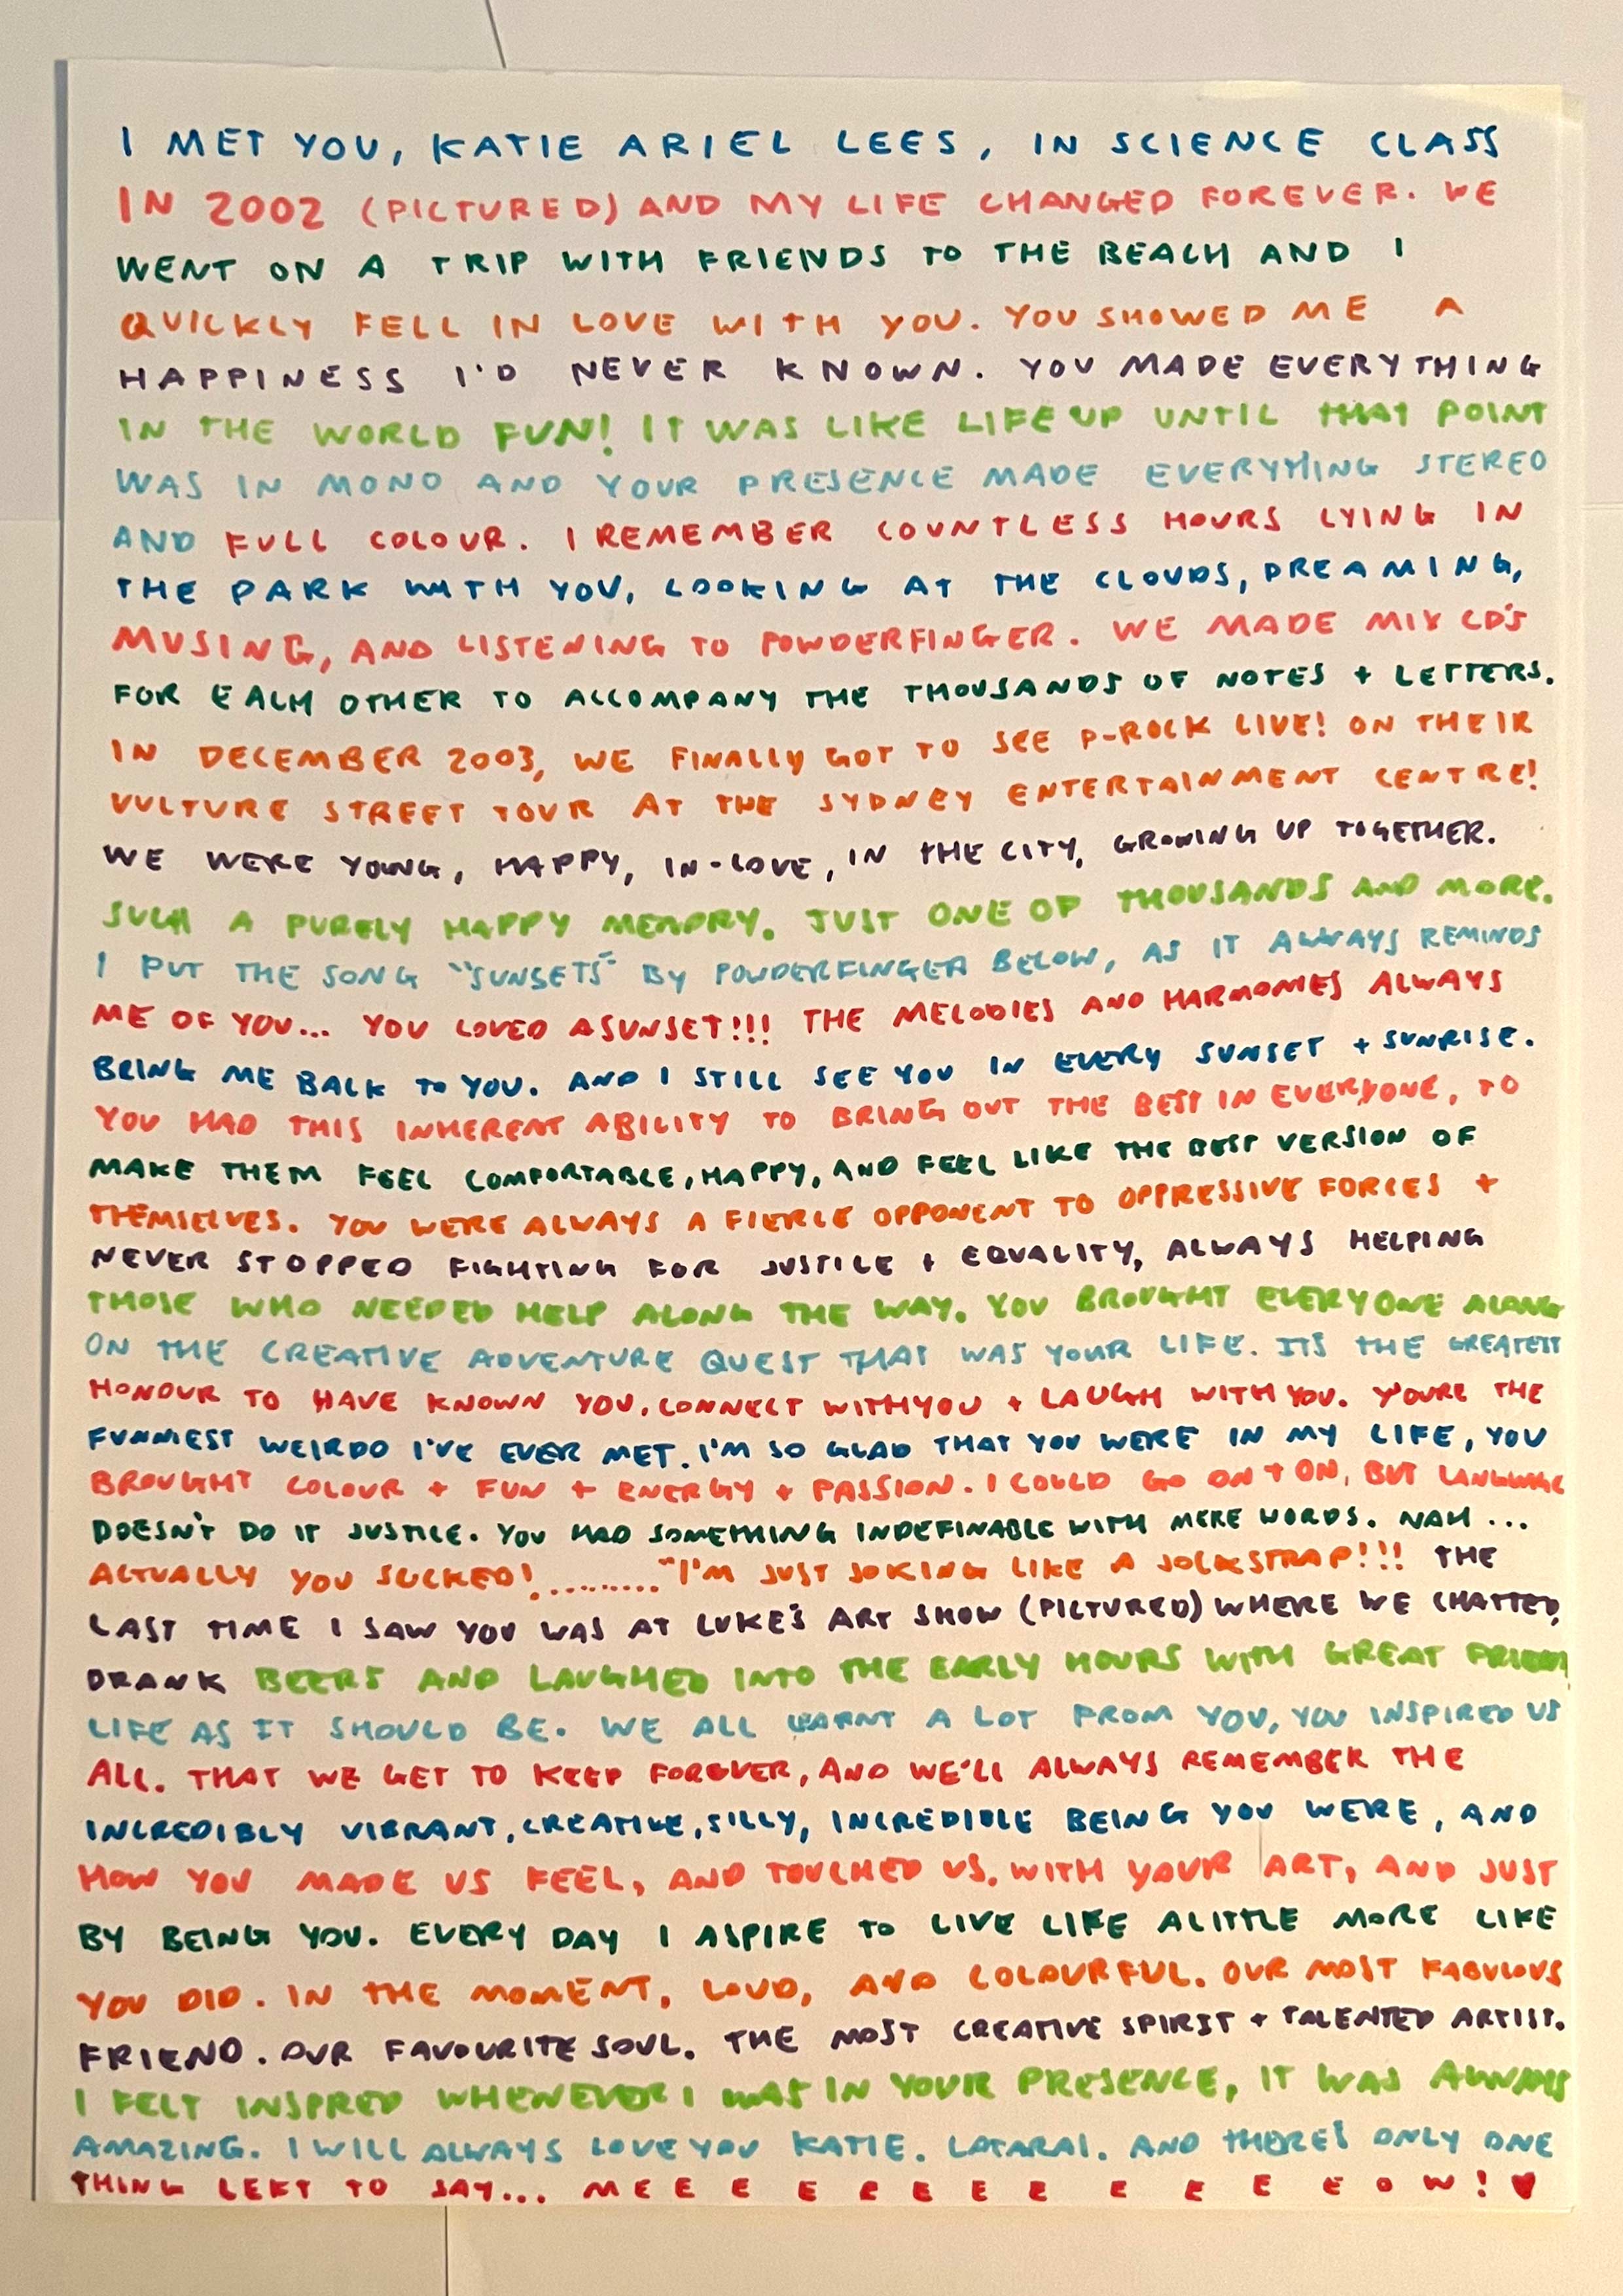 I MET YOU, KATIE ARIEL LEES, IN SCIENCE CLASS
IN 2002 (PICTURED) AND MY LIFE CHANGED FOREVER. WE
WENT ON A TRIP WITH FRIENDS TO THE BEACH AND I
QUICKLY FELL IN LOVE WITH YOU. YOU SHOWED ME A
HAPPINESS I'D NEVER KNOWN. YOU MADE EVERYTHING
IN THE WORLD FUN! IT WAS LIKE LIFE UP UNTIL THAT POINT
WAS IN MONO AND YOUR PRESENCE MADE EVERYTHING STEREO
AND FULL COLOUR. I REMEMBER COUNTLESS HOURS LYING IN
THE PARK WITH YOU, LOOKING AT THE CLOUDS, DREAMING,
MUSING, AND LISTENING TO POWDERFINGER. WE MADE MIX CD'S
FOR EACH OTHER TO ACCOMPANY THE THOUSANDS OF NOTES + LETTERS.
IN DECEMBER 2003, WE FINALLY GOT TO SEE P-ROCK LIVE! ON THEIR
VULTURE STREET TOUR AT THE SYDNEY ENTERTAINMENT CENTRE!
WE WERE YOUNG, HAPPY, IN-LOVE, IN THE CITY, GROWING UP TOGETHER.
SUCH A PURELY HAPPY MEMORY. JUST ONE OF THOUSANDS AND MORE.
I PUT THE SONG "SUNSETS" BY POWDERFINGER BELOW, AS IT ALWAYS REMINDS
ME OF YOU... YOU LOVED A SUNSET!!! THE MELODIES AND HARMONIES ALWAYS
BRING ME BACK TO YOU. AND I STILL SEE YOU IN EVERY SUNSET + SUNRISE.
YOU HAD THIS INHERENT ABILITY TO BRING OUT THE BEST IN EVERYONE, TO
MAKE THEM FEEL COMFORTABLE, HAPPY, AND FEEL LIKE THE BEST VERSION OF
THEMSELVES. YOU WERE ALWAYS A FIERCE OPPONENT TO OPPRESSIVE FORCES +
NEVER STOPPED FIGHTING FOR JUSTICE + EQUALITY, ALWAYS HELPING
THOSE WHO NEEDED HELP ALONG THE WAY. YOU BROUGHT EVERYONE ALONG
ON THE CREATIVE ADVENTURE QUEST THAT WAS YOUR LIFE. ITS THE GREATEST
HONOUR TO HAVE KNOWN YOU, CONNECT WITH YOU + LAUGH WITH YOU. YOU'RE THE
FUNNIEST WEIRDO I'VE EVER MET. I'M SO GLAD THAT YOU WERE IN MY LIFE, YOU
BROUGHT COLOUR + FUN + ENERGY + PASSION. I COULD GO ON + ON, BUT LANGUAGE
DOESN'T DO IT JUSTICE. YOU HAD SOMETHING INDEFINABLE WITH MERE WORDS. NAH...
ACTUALLY YOU SUCKED!........."I'M JUST JOKING LIKE A JOCKSTRAP!!! THE
LAST TIME I SAW YOU WAS AT LUKE'S ART SHOW (PICTURED) WHERE WE CHATTED,
DRANK BEERS AND LAUGHED INTO THE EARLY HOURS WITH GREAT
LIFE AS IT SHOULD BE. WE ALL LEARNT A LOT FROM YOU, YOU INSPIRED US
ALL. THAT WE GET TO KEEP FOREVER, AND WE'LL ALWAYS REMEMBER THE
INCREDIBLY VIBRANT, CREATIVE, SILLY, INCREDIBLE BEING YOU WERE, AND
HOW YOU MADE US FEEL, AND TOUCHED US, WITH YOUR ART, AND JUST
BY BEING YOU. EVERY DAY I ASPIRE TO LIVE LIFE A LITTLE MORE LIKE
YOU DID. IN THE MOMENT, LOUD, AND COLOURFUL. OUR MOST FABULOUS
FRIEND. OUR FAVOURITE SOUL. THE MOST CREATIVE SPIRIT + TALENTED ARTIST.
I FELT INSPRED WHENEVER I WAS IN YOUR PRESENCE, IT WAS ALWAYS
AMAZING. I WILL ALWAYS LOVE YOU KATIE. LATARAI. AND THERE'S ONLY ONE
THING LEFT TO SAY... MEEEEEEEEEEOW! ♥